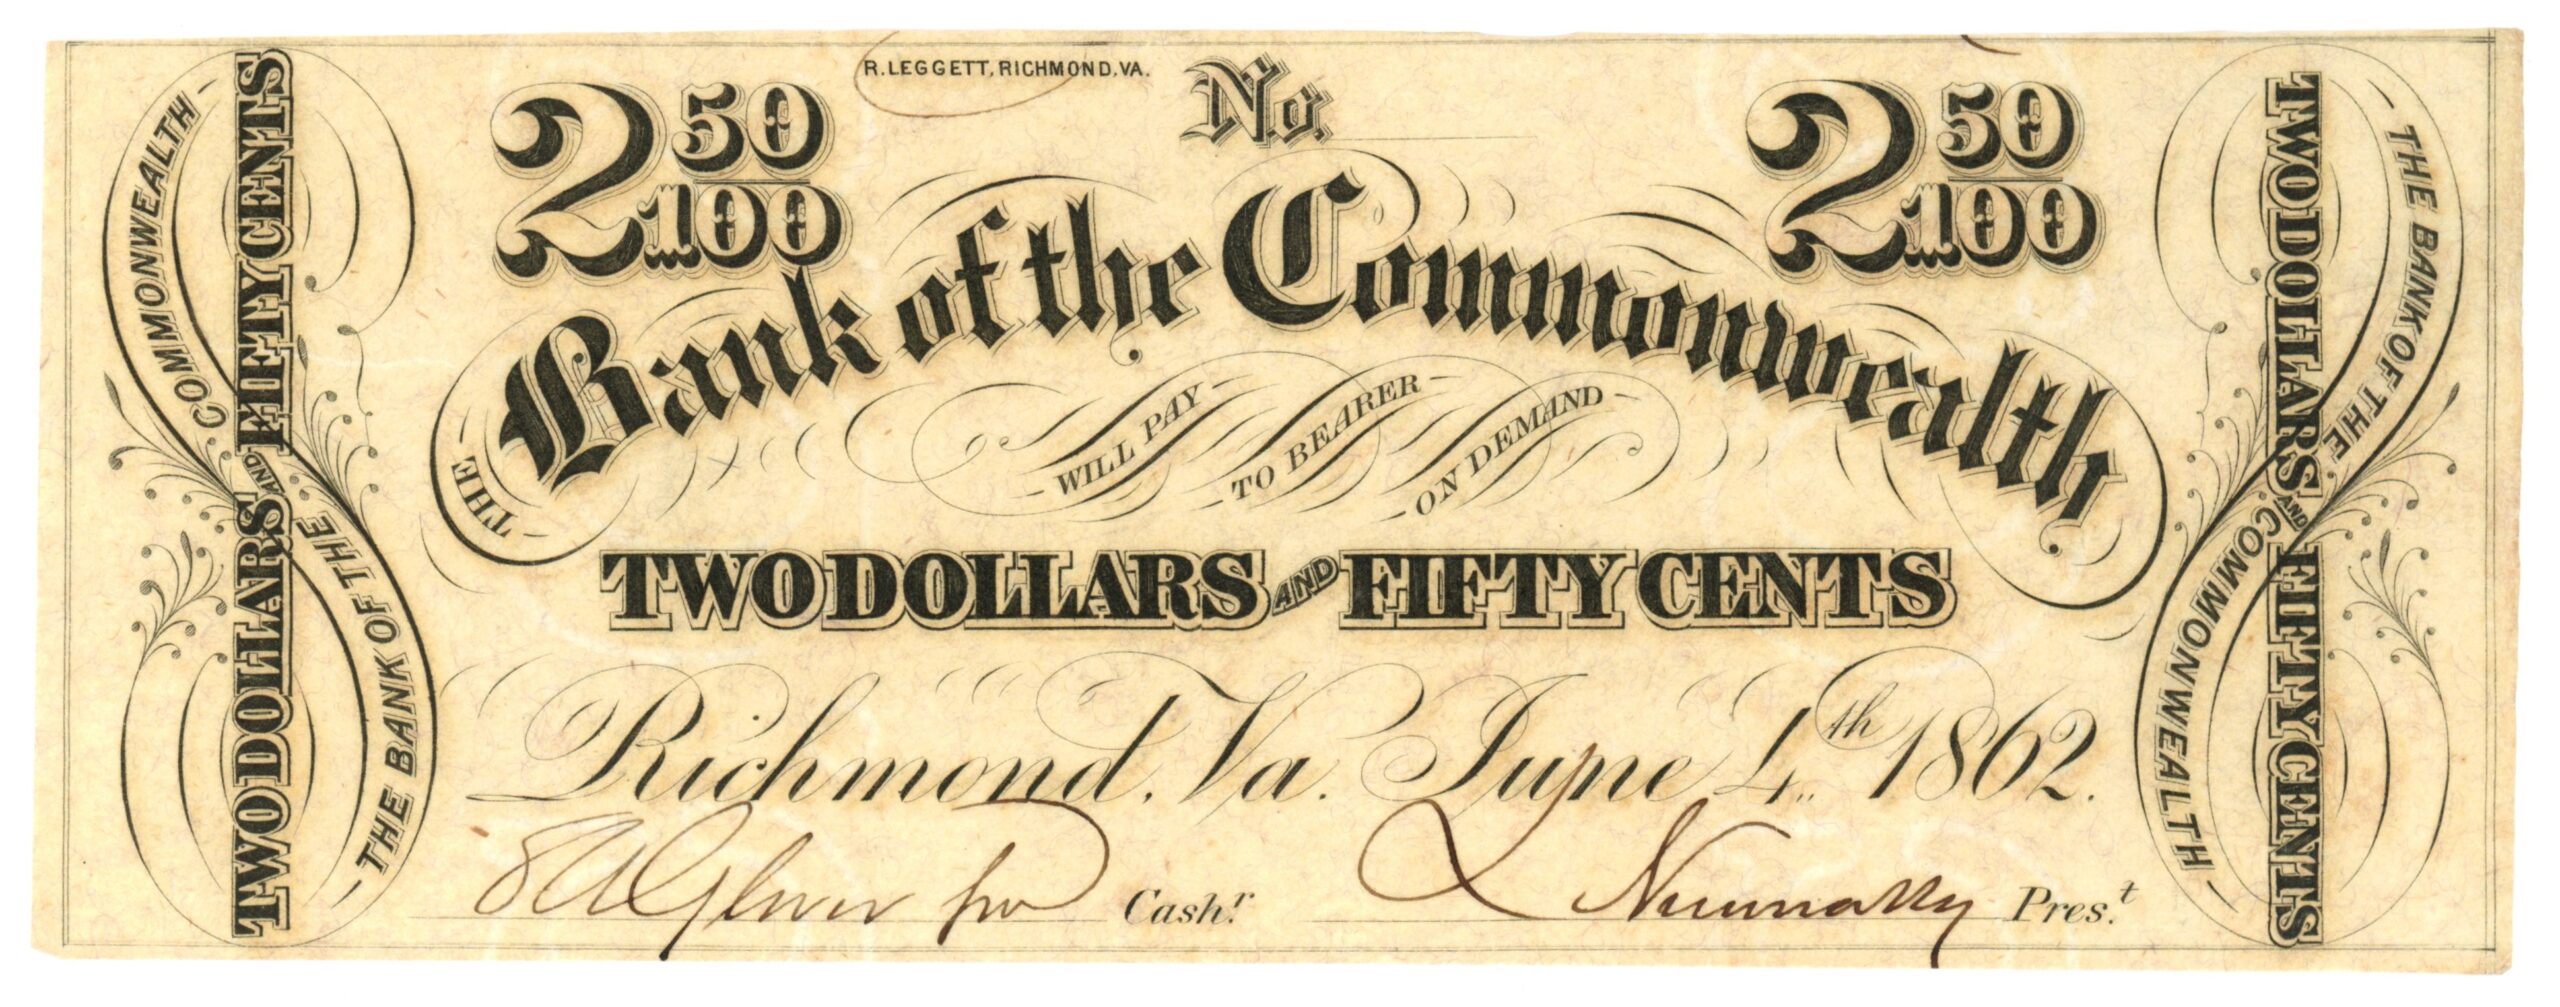 R. LEGGETT, RICHMOND, VA.
No.
2 50/100
2 50/100
THE
Bank of the Commonwealth
WILL PAY
TO BEARER
ON DEMAND
TWO DOLLARS AND FIFTY CENTS
Richmond, Va. June 4th 1862.
Cashr.
Prest.
TWO DOLLARS AND FIFTY CENTS
THE BANK OF THE COMMONWEALTH
TWO DOLLARS AND FIFTY CENTS
THE BANK OF THE COMMONWEALTH